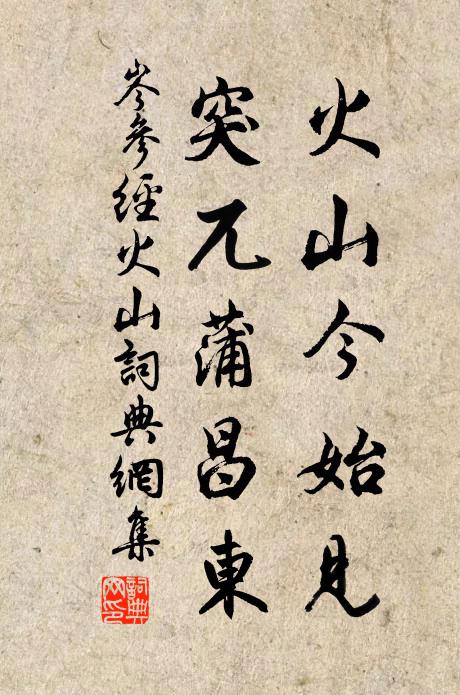 火山今始見
突兀蒲昌東
岑參經火山詞典網集
詞典網印